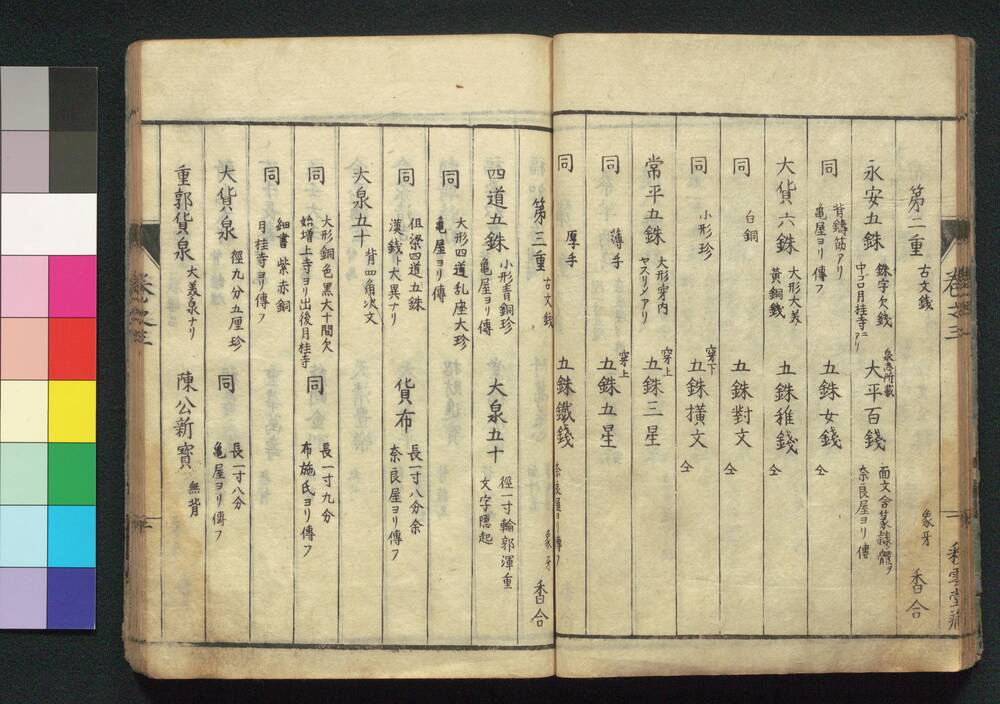 第二重 古文銭 象牙 香合
永安五銖 銖字欠銭
中ゴロ月桂寺ニアリ 大平百錢 面文含篆隷體ヲ
奈良屋ヨリ傳
同 背鑄筋アリ
亀屋ヨリ傳フ 五銖女錢 仝
大貨六銖 大形大美
黄銅錢 五銖稚錢 仝
同 白銅 五銖對文 仝
同 小形珍 穿下 五銖横文 仝
常平五銖 大形穿内
ヤスリメアリ 穿上 五銖三星
同 薄手 穿上 五銖五星
同 厚手 五銖鐵錢 奈良屋ヨリ傳フ
第三重 古文銭 象牙 香合
四道五銖 小形青銅珍
亀屋ヨリ傳 大泉五十 徑一寸輪郭渾重
文字隠起
同 大形四道乱座大珍
亀屋ヨリ傳
同 但梁四道五銖
漢錢ト大異ナリ 貨布 長一寸八分余
奈良屋ヨリ傳フ
大泉五十 背四角决文
同 大形銅色黒大十間欠
始増上寺ヨリ出後月桂寺 同 長一寸九分
布施氏ヨリ傳フ
同 細書 紫赤銅
月桂寺ヨリ傳フ
大貨泉 徑九分五厘珍 同 長一寸八分
亀屋ヨリ傳フ
重郭貨泉 大美泉ナリ 陳公新寳 無背